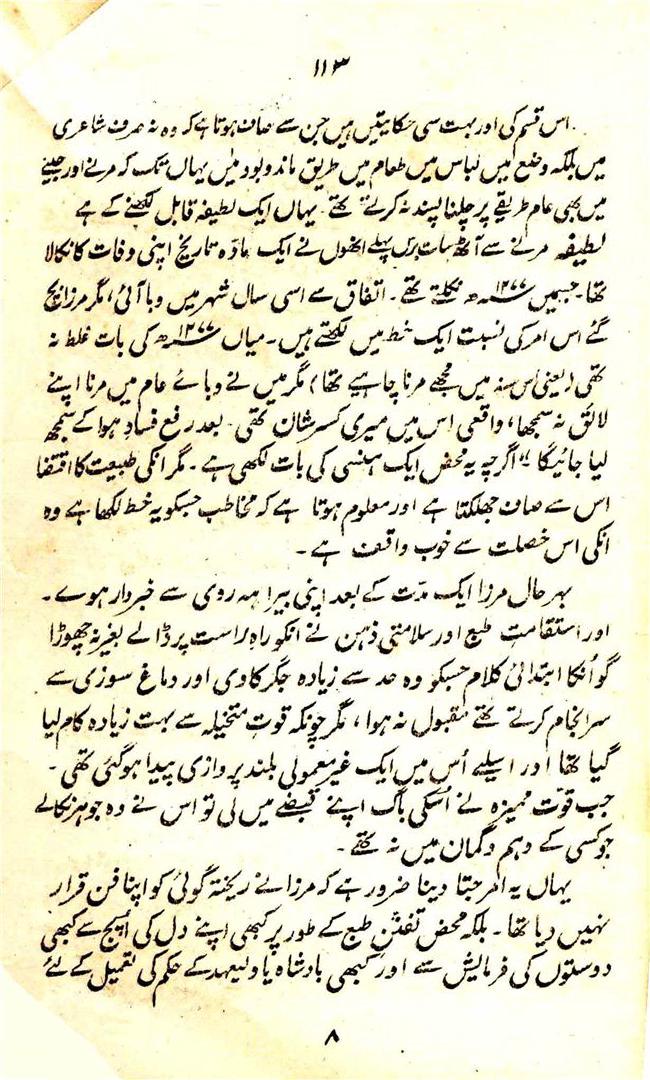 ۱۱۳
اس قسم کی اور بہت سی حکایتیں ہیں جن سے صاف ہوتا ہے کہ وہ نہ صرف شاعری
میں بلکہ وضع میں لباس میں طعام میں طریق ماندوبود میں یہاں تک کہ مرنے اور جینے
میں بھی عام طریقے پر چلنا پسند نہ کرتے تھے۔ یہاں ایک لطیفہ قابل لکھنے کے ہے
لطیفہ مرنے سے آٹھ سات برس پہلے انھوں نے ایک مادّہ تاریخ اپنی وفات کا نکالا
تھا۔ جسمیں ۱۲۷۷ھ نکلتے تھے۔ اتفاق سے اسی سال شہر میں وبا آئی، مگر مرزا بچ
گئے اس امر کی نسبت ایک خط میں لکھتے ہیں۔ میاں ۱۲۷۷ھ کی بات غلط نہ
تھی (یعنی اس سنہ میں مجھے مرنا چاہیے تھا) مگر میں نے وبائے عام میں مرنا اپنے
لائق نہ سمجھا، واقعی اس میں میری کسر شان تھی۔ بعد رفع فساد ہوا کے سمجھ
لیا جائیگا" اگرچہ یہ محض ایک ہنسی کی بات لکھی ہے۔ مگر انکی طبیعت کا اقتضا
اس سے صاف جھلکتا ہے اور معلوم ہوتا ہے کہ مخاطب جسکو یہ خط لکھا ہے وہ
انکی اس خصلت سے خوب واقف ہے۔
بہر حال مرزا ایک مدّت کے بعد اپنی بیراہہ روی سے خبردار ہوے۔
اور استقامتِ طبع اور سلامتی ذہن نے انکو راہِ راست پر ڈالے بغیر نہ چھوڑا
گو اُنکا ابتدائی کلام جسکو وہ حد سے زیادہ جگر کاوی اور دماغ سوزی سے
سرانجام کرتے تھے مقبول نہ ہوا، مگر چونکہ قوتِ متخیلہ سے بہت زیادہ کام لیا
گیا تھا اور اسلیے اُس میں ایک غیر معمولی بلند پروازی پیدا ہوگئی تھی۔
جب قوّت ممیزہ نے اسکی باگ اپنے قبضے میں لی تو اس نے وہ جوہر نکالے
جو کسی کے وہم وگمان میں نہ تھے۔
یہاں یہ امر جتا دینا ضرور ہے کہ مرزا نے ریختہ گوئی کو اپنا فن قرار
نہیں دیا تھا۔ بلکہ محض تفنّنِ طبع کے طور پر کبھی اپنے دل کی اُپج سے کبھی
دوستوں کی فرمایش سے اور کبھی بادشاہ یا ولیعہد کے حکم کی تعمیل کے لئے
۸